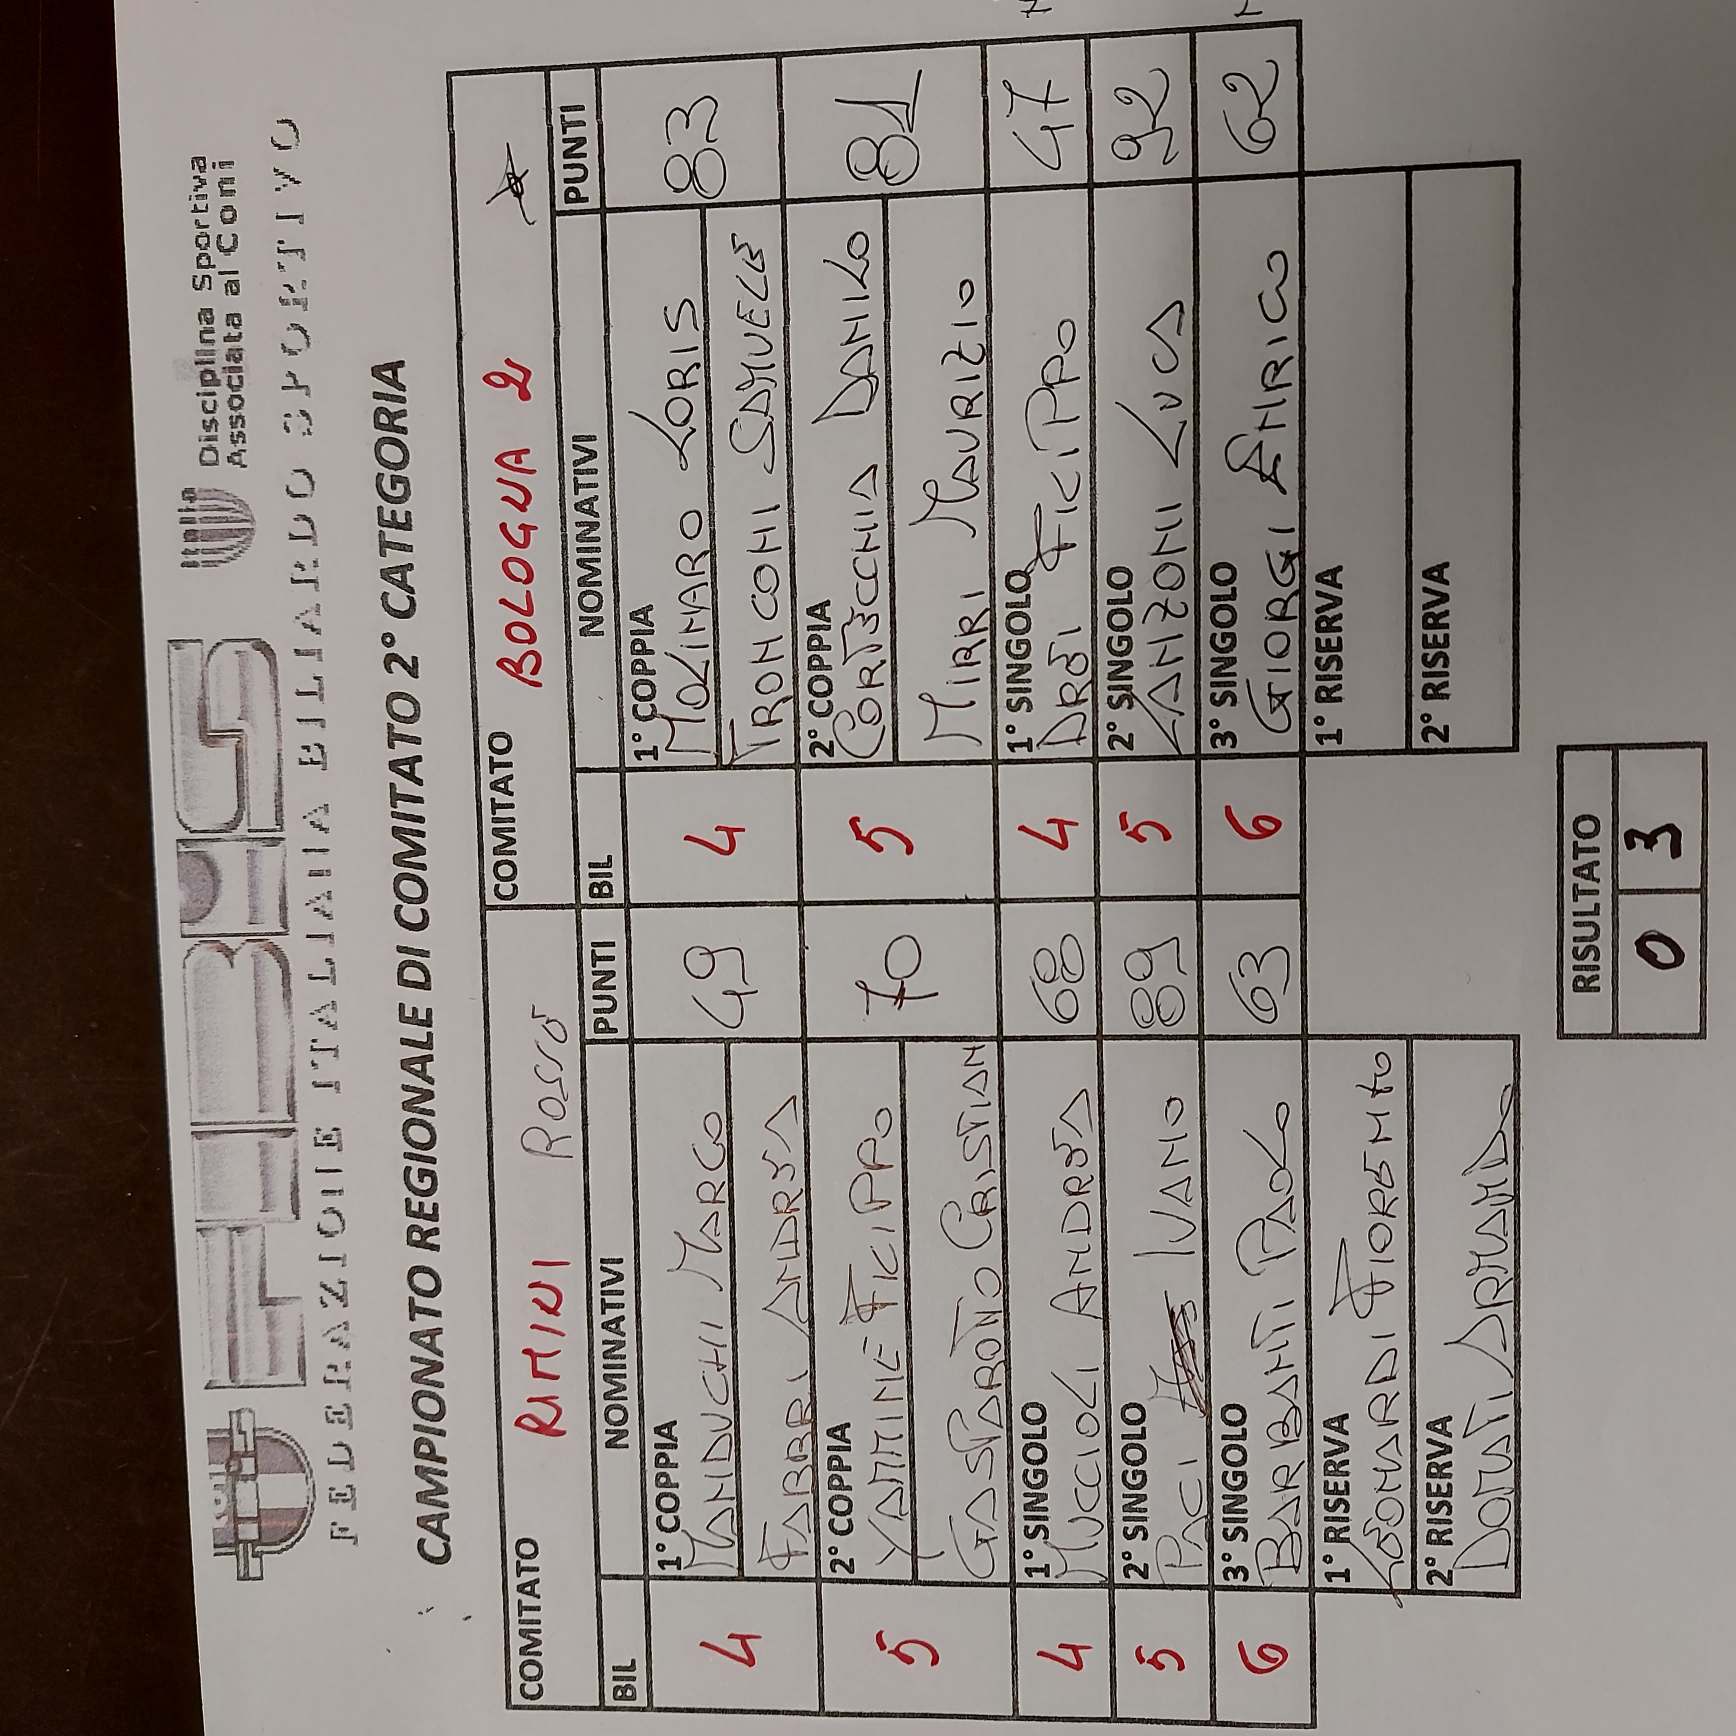 FIBiS
Disciplina Sportiva
Associata al Coni
FEDERAZIONE ITALIANA BILIARDO SPORTIVO
CAMPIONATO REGIONALE DI COMITATO 2° CATEGORIA
COMITATO RIMINI ROSSO COMITATO BOLOGNA 2
BIL NOMINATIVI PUNTI BIL NOMINATIVI PUNTI
1° COPPIA 1° COPPIA
4 MANDUCHI MARCO 49 4 MOLINARO LORIS 83
FABBRI ANDREA TRONCONI SAMUELE
2° COPPIA 2° COPPIA
5 YAMMINE FILIPPO 70 5 CORTECCHIA DANILO 81
GASPAROTTO CRISTIAN MIRRI MAURIZIO
1° SINGOLO 1° SINGOLO
4 MUCCIOLI ANDREA 68 4 DREI FILIPPO 47
2° SINGOLO 2° SINGOLO
5 PACI IVANO 89 5 ZANZONI LUCA 92
3° SINGOLO 3° SINGOLO
6 BARBANTI PAOLO 63 6 GIORGI ENRICO 62
1° RISERVA 1° RISERVA
LEONARDI FIORENTO
2° RISERVA 2° RISERVA
DONATI ARMANDO
RISULTATO
0 3